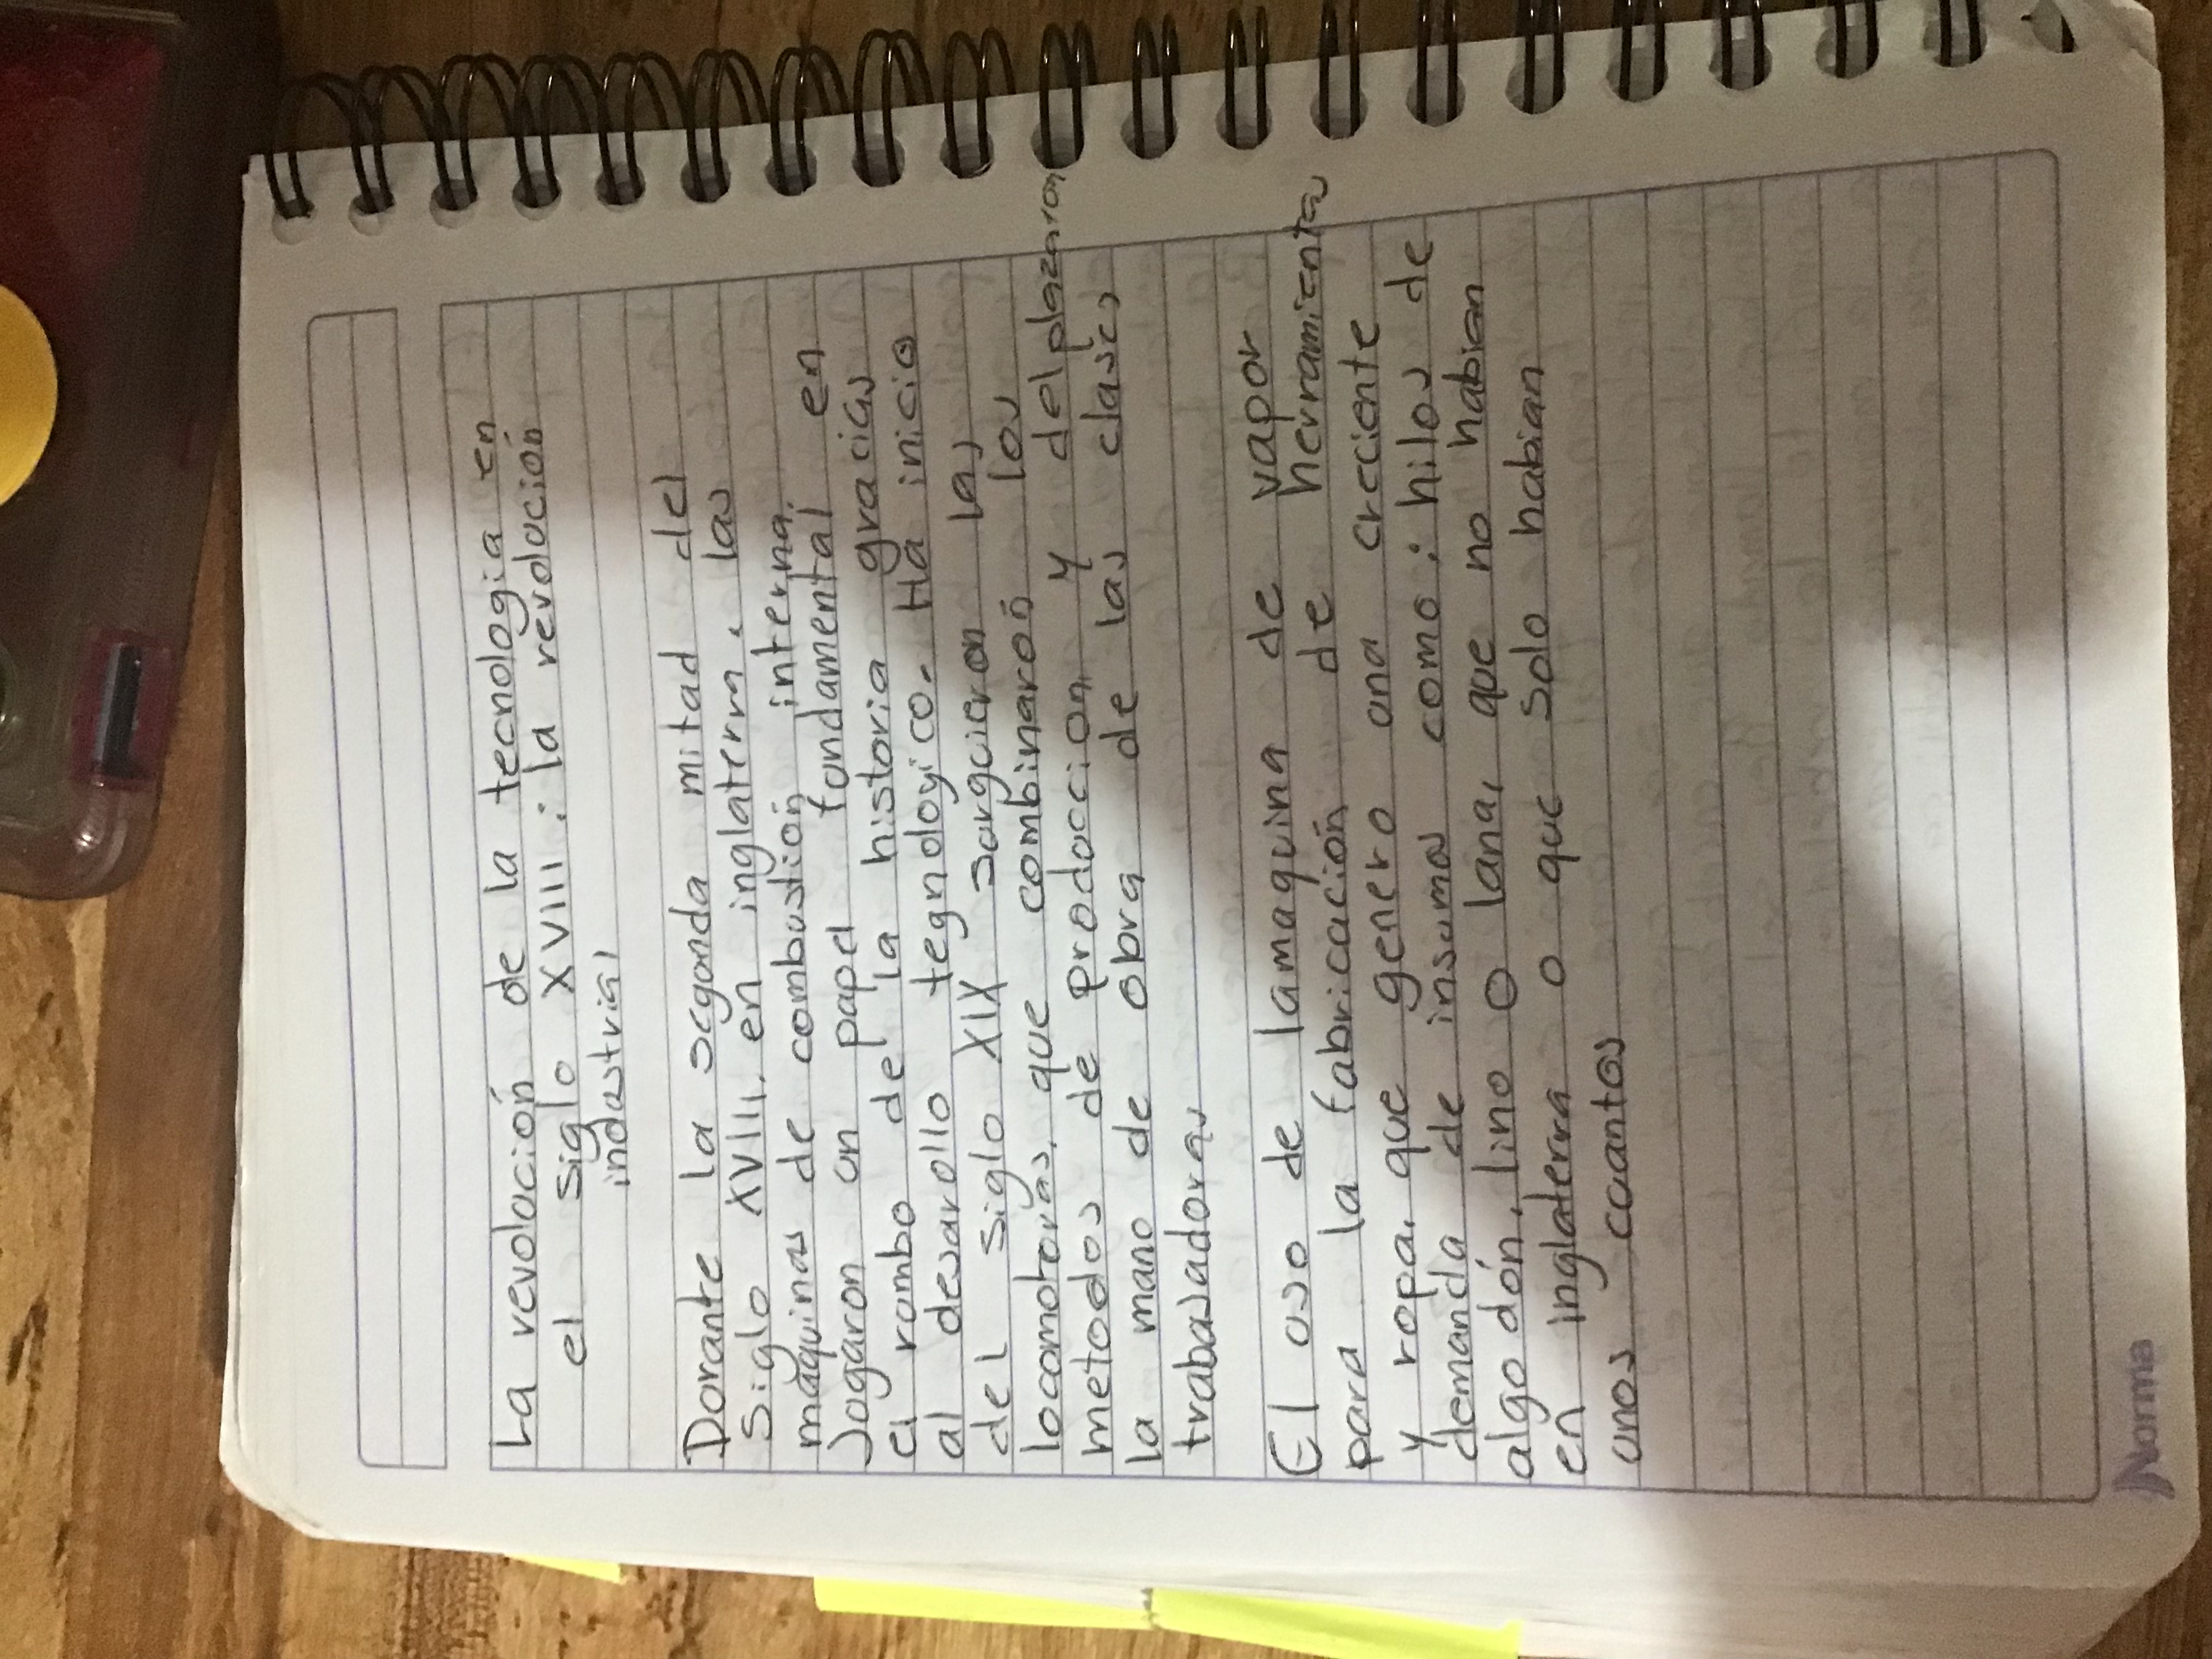 La revolución de la tecnologia en
el siglo XVIII : la revolución
industrial
Durante la segunda mitad del
siglo XVIII, en inglaterra, las
maquinas de combustión interna,
Jugaron un papel fundamental en
el rumbo de la historia gracias
al desarollo tegnologico. Ha inicio
del siglo XIX surguieron las
locomotoras, que combinarón los
metodos de produccion y delplazaron
la mano de obra de las clases
trabasadoras
El uso de lamaquina de vapor
para la fabricación de herramienta
y ropa, que genero una creciente
demanda de insumos como : hilos de
algodón, lino o lana, que no habian
en inglaterra o que solo habian
unos cuantos
Norma